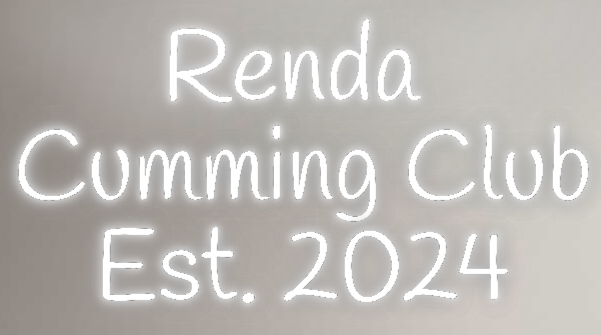 Renda
Cumming Club
Est. 2024